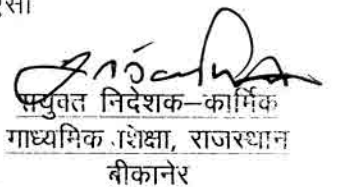 संयुक्त निदेशक–कार्मिक
माध्यमिक शिक्षा, राजस्थान
बीकानेर